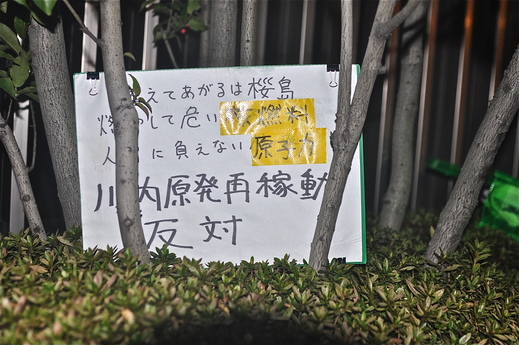 えてあがるは桜島
燃 して危い 燃料
人 に負えない原子力
川内原発再稼動
反対